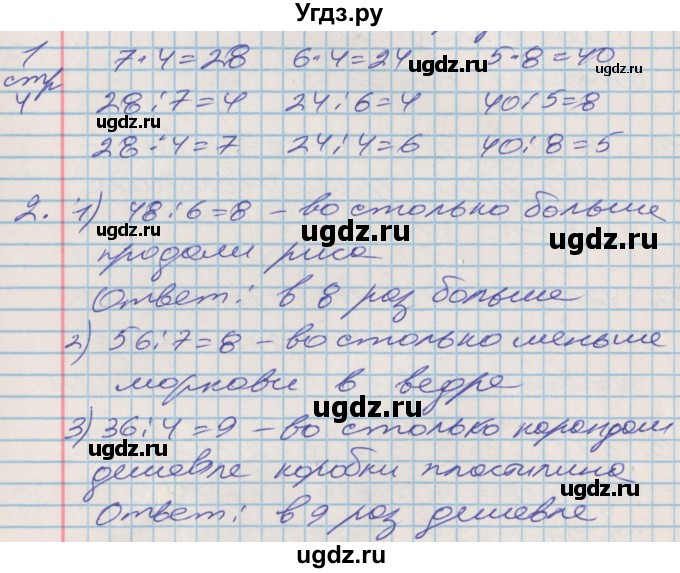 Угдз.ру
1 7·4=28 6·4=24 5·8=40
стр
4 28:7=4 24:6=4 40:5=8
28:4=7 24:4=6 40:8=5
2. 1) 48:6=8 – во столько больше
продали риса
Ответ: в 8 раз больше
2) 56:7=8 – во столько меньше
моркови в ведре
3) 36:4=9 – во столько карандаш
дешевле коробки пластилина
Ответ: в 9 раз дешевле
ugdz.ru
ugdz.ru
ugdz.ru
ugdz.ru
ugdz.ru
ugdz.ru
ugdz.ru
ugdz.ru
ugdz.ru
ugdz.ru
ugdz.ru